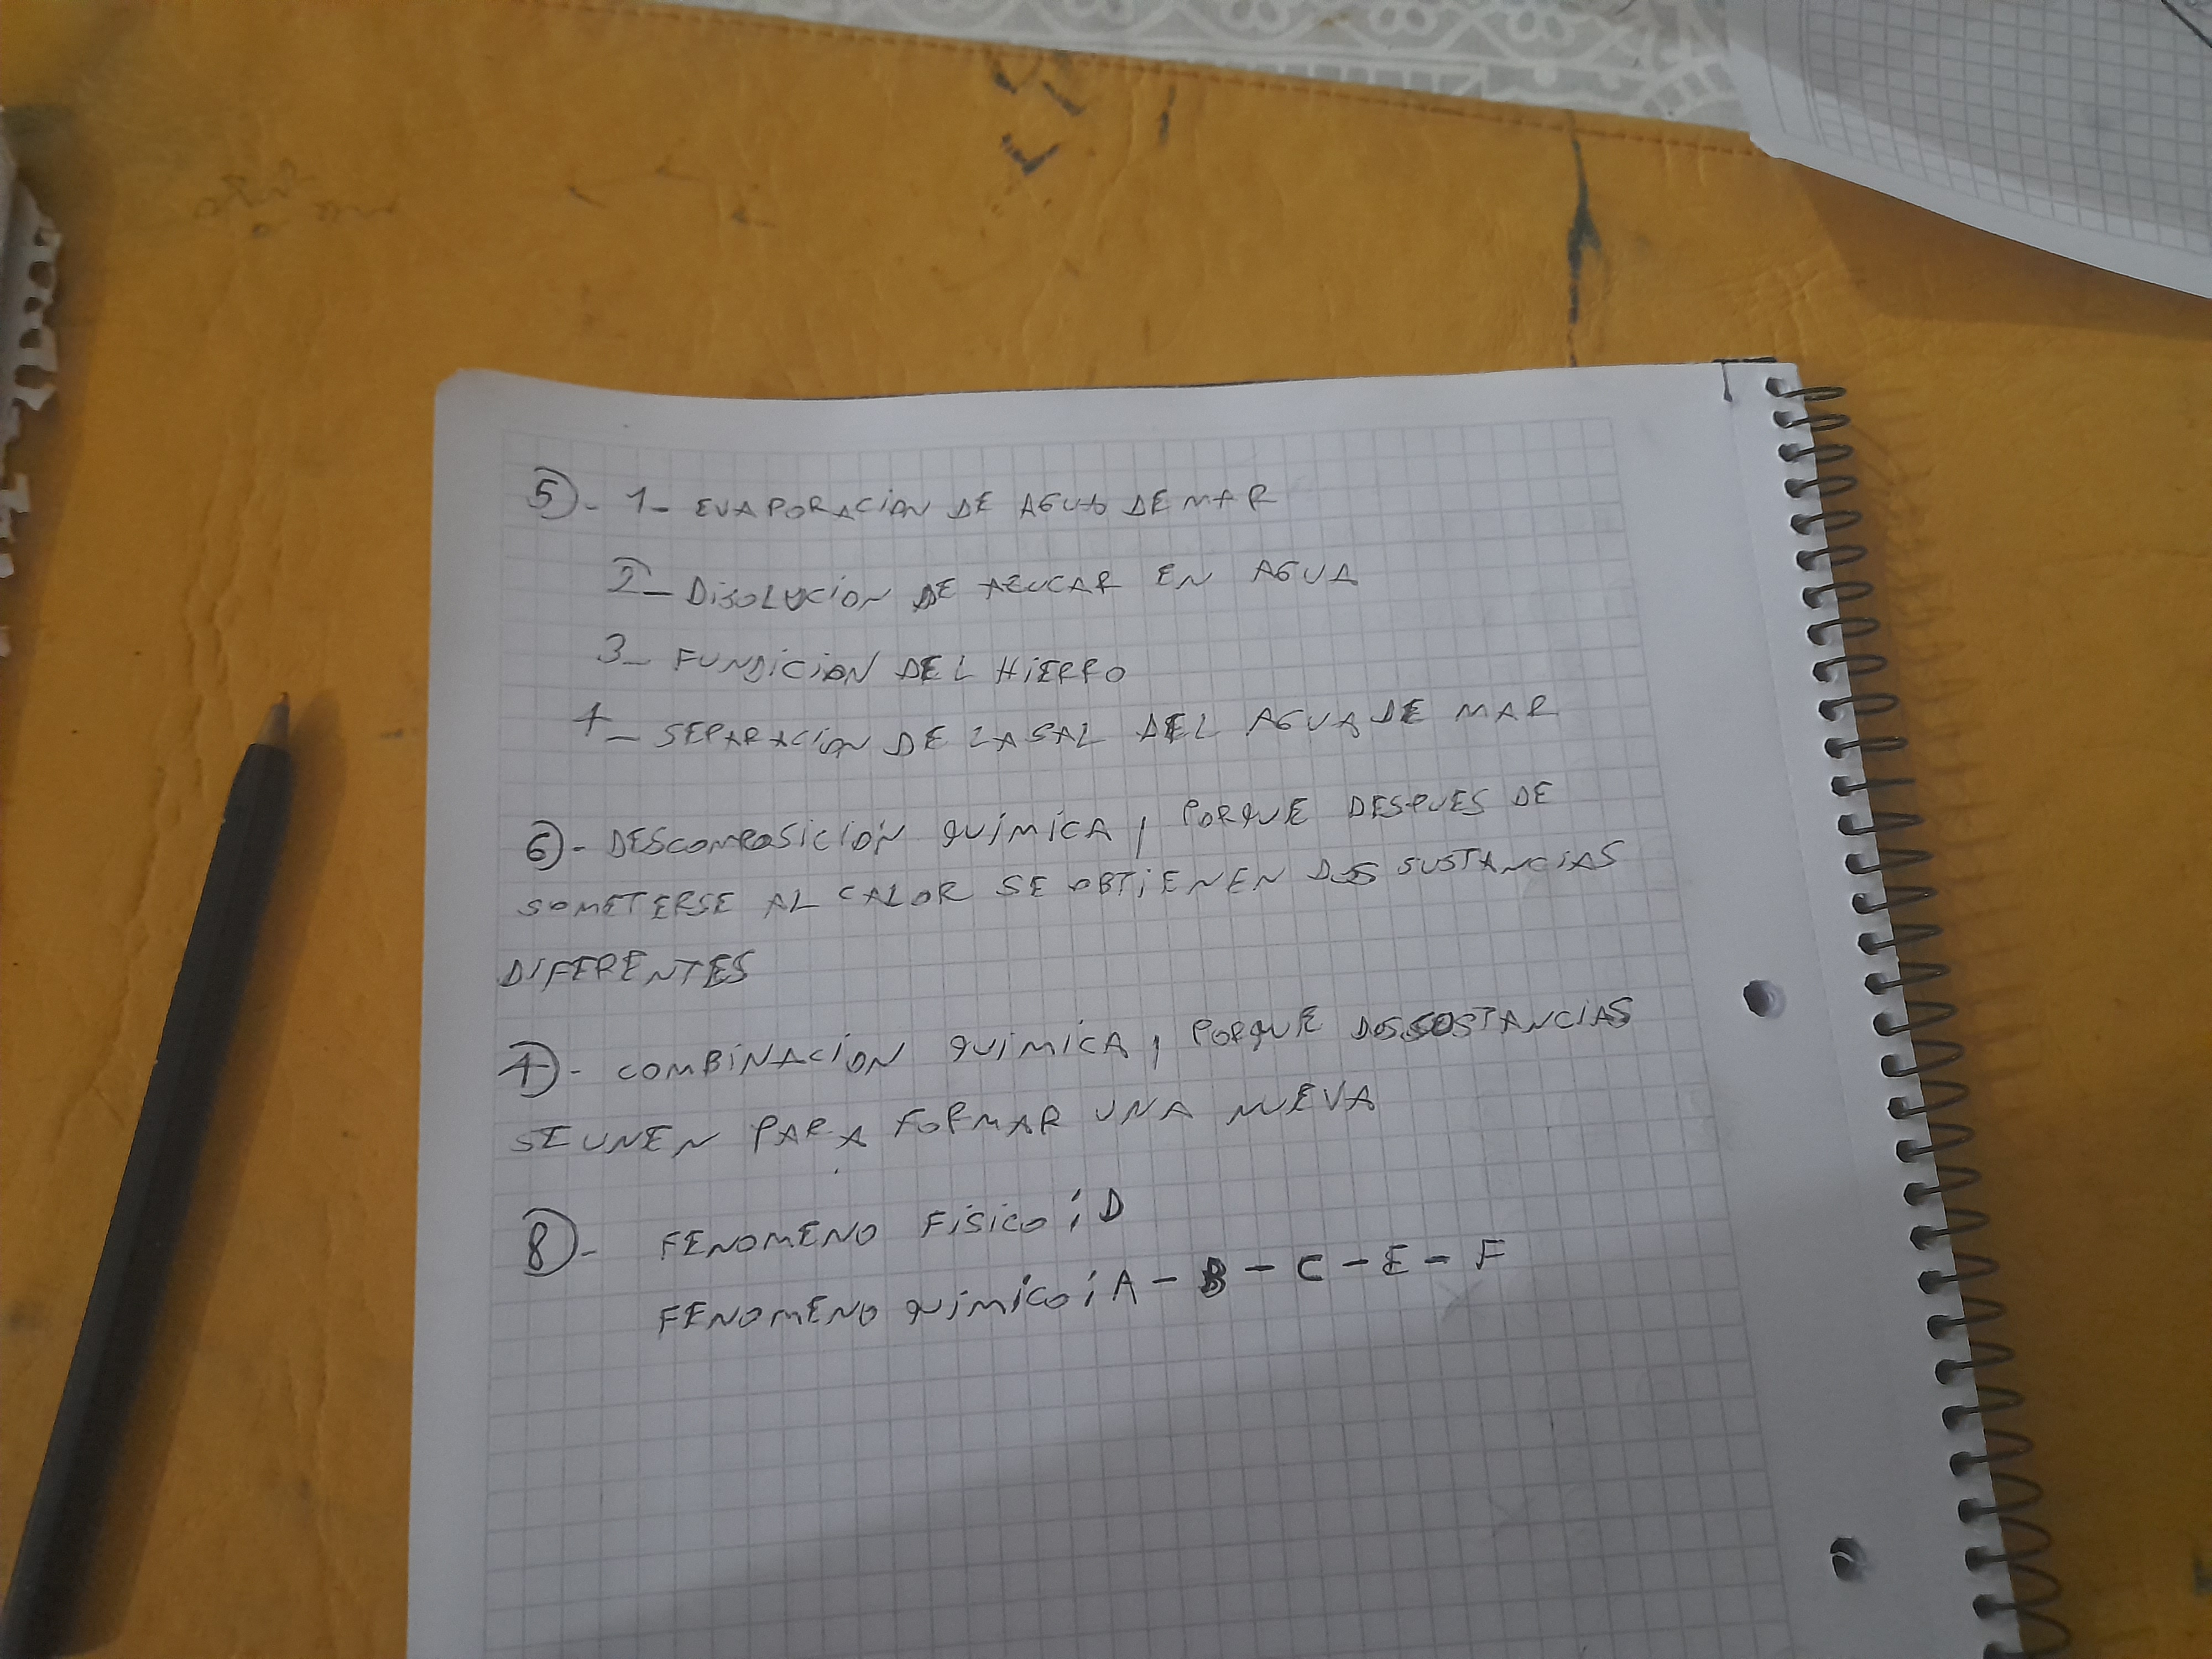 5)- 1- EVAPORACION DE AGUA DE MAR
2- DISOLUCION DE AZUCAR EN AGUA
3- FUNDICION DEL HIERRO
4- SEPARACION DE LA SAL DEL AGUA DE MAR
6)- DESCOMPOSICION QUIMICA, PORQUE DESPUES DE
SOMETERSE AL CALOR SE OBTIENEN DOS SUSTANCIAS
DIFERENTES
7)- COMBINACION QUIMICA, PORQUE DOS SOSTANCIAS
SE UNEN PARA FORMAR UNA NUEVA
8)- FENOMENO FISICO: D
FENOMENO QUIMICO: A - B - C - E - F